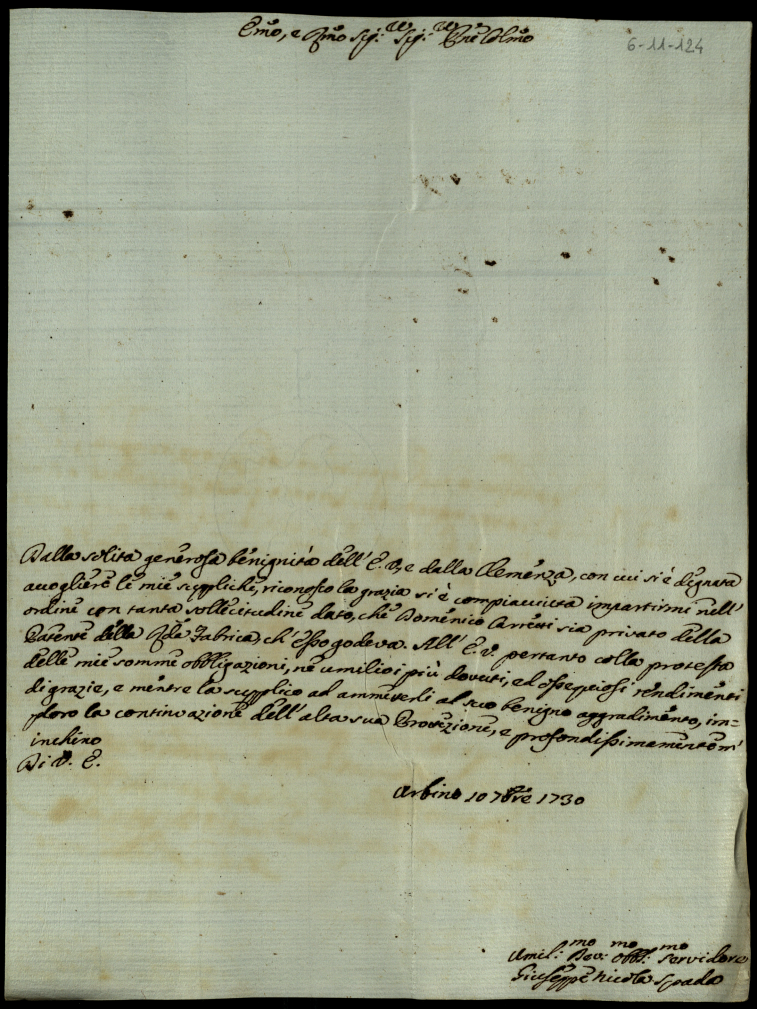 Emo, e Rmo Sig:re Sig:re Pne Colmo
6-11-124
Dalla solita generosa benignità dell' E. V, e dalla Clemenza, con cui si è degnata
accogliere le mie suppliche, riconosco la grazia si è compiacciuta impartirmi nell'
ordine con tanta sollecitudine dato, che Domenico Arresti sia privato della
Patente della Rda Fabrica, ch' esso godeva. All' E. V. pertanto colla protesta
delle mie somme obbligazioni, ne umilio i più dovuti, ed ossequiosi rendimenti
di grazie, e mentre la supplico ad ammeterli al suo benigno aggradimento, im=
ploro la continuazione dell' alta sua Protezione, e profondissimamente m'
inchino
Di V. E.
Urbino 10 7bre 1730
Umil:mo Dev:mo Obbl:mo Servidore
Giuseppe Nicola Spada